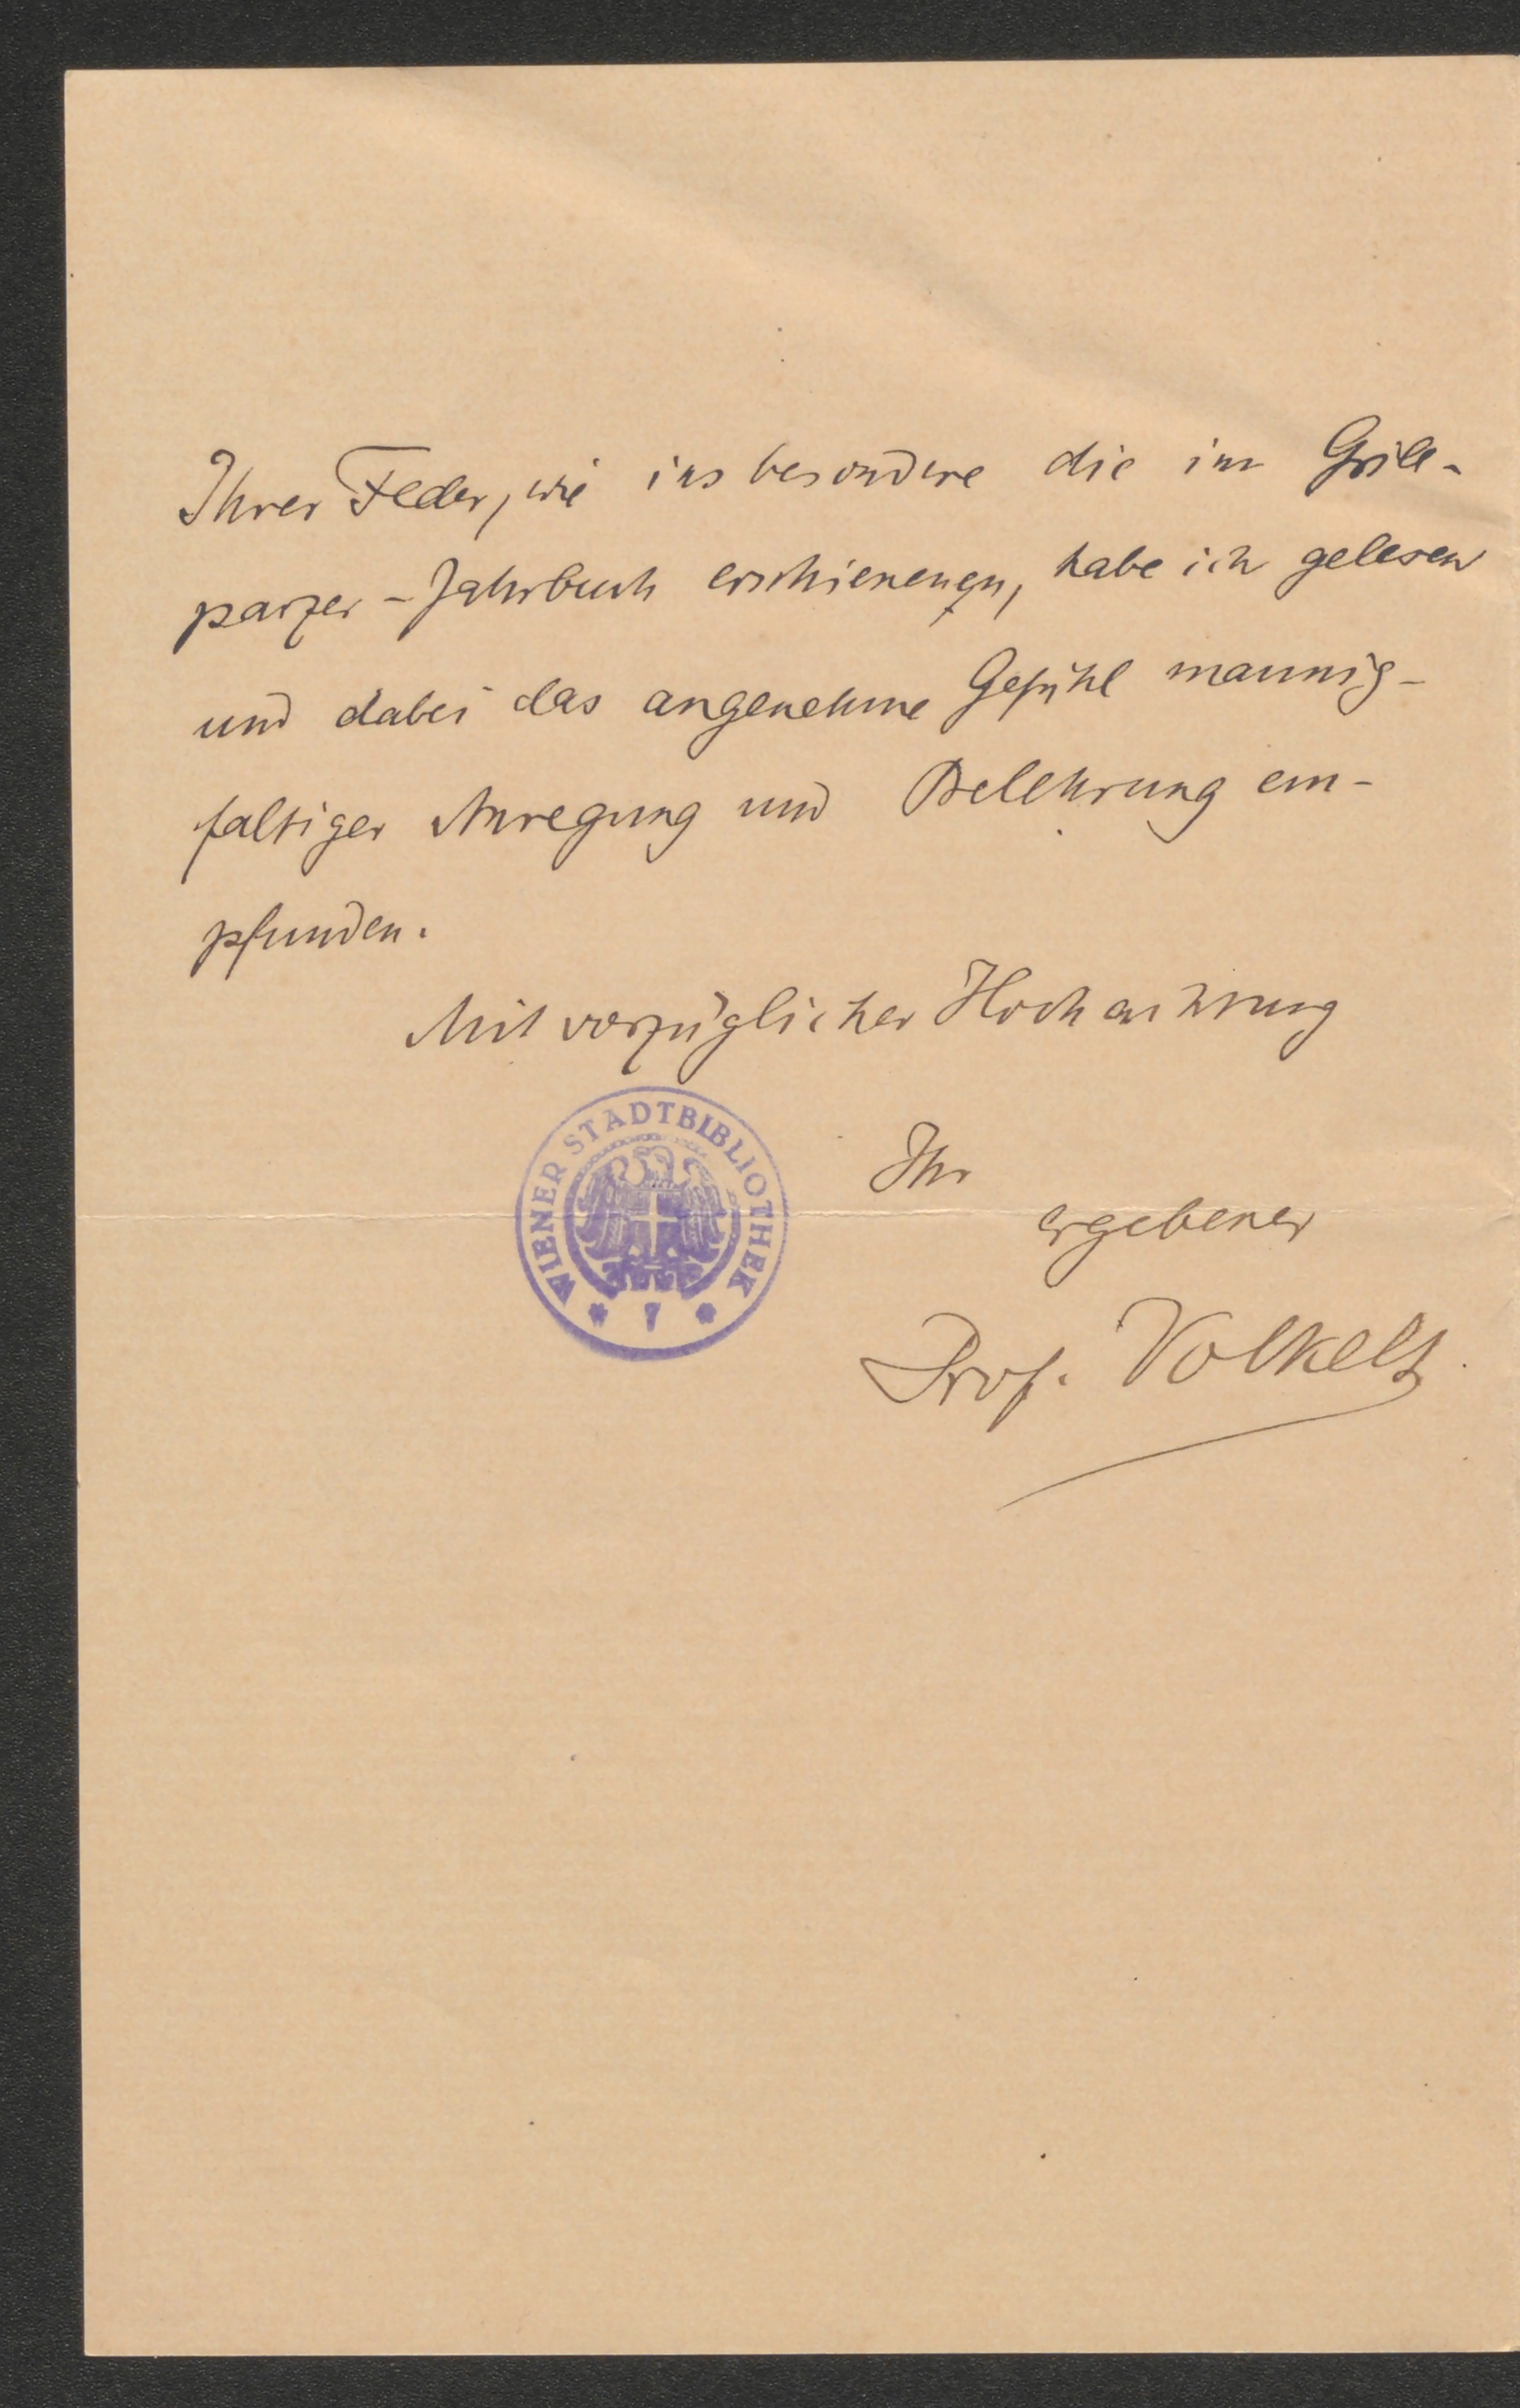 Ihrer Feder, wie insbesondere die im Grill-
parzer-Jahrbuch erschienenen, habe ich gelesen
und dabei das angenehme Gefühl mannig-
faltiger Anregung und Belehrung em-
pfunden.
Mit vorzüglicher Hochachtung
WIENER STADTBIBLIOTHEK
* 7 *
Ihr
ergebener
Prof. Volkelt.